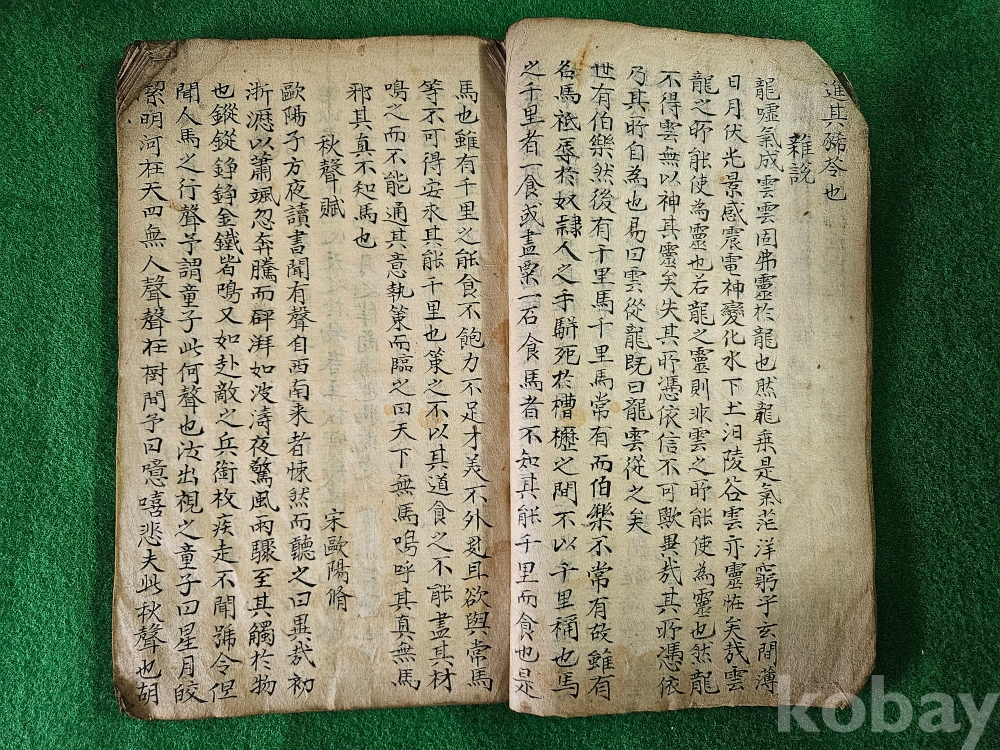 進其豨苓也
雜説
龍噓氣成雲雲固弗靈於龍也然龍乗是氣茫洋窮乎玄間薄
日月伏光景感震電神變化水下土汨陵谷雲亦靈恠矣㢤雲
龍之所能使為靈也若龍之靈則非雲之所能使為靈也然龍
不得雲無以神其靈矣失其所憑依信不可歟異㢤其所憑依
乃其所自為也易曰雲從龍既曰龍雲從之矣
世有伯樂然後有千里馬千里馬常有而伯樂不常有故雖有
名馬祗辱於奴隷人之手駢死於槽櫪之間不以千里稱也馬
之千里者一食或盡粟一石食馬者不知其能千里而食也是
馬也雖有千里之能食不飽力不足才美不外見且欲與常馬
等不可得安求其能千里也策之不以其道食之不能盡其材
鳴之而不能通其意執策而臨之曰天下無馬嗚呼其真無馬
邪其真不知馬也
秋聲賦 宋歐陽脩
歐陽子方夜讀書聞有聲自西南来者悚然而聽之曰異㢤初
淅瀝以蕭颯忽奔騰而砰湃如波濤夜驚風雨驟至其觸於物
也鏦鏦錚錚金鐵皆鳴又如赴敵之兵銜枚疾走不聞號令但
聞人馬之行聲予謂童子此何聲也汝出視之童子曰星月皎
潔明河在天四無人聲聲在樹間予曰噫嘻悲夫此秋聲也胡
kobay